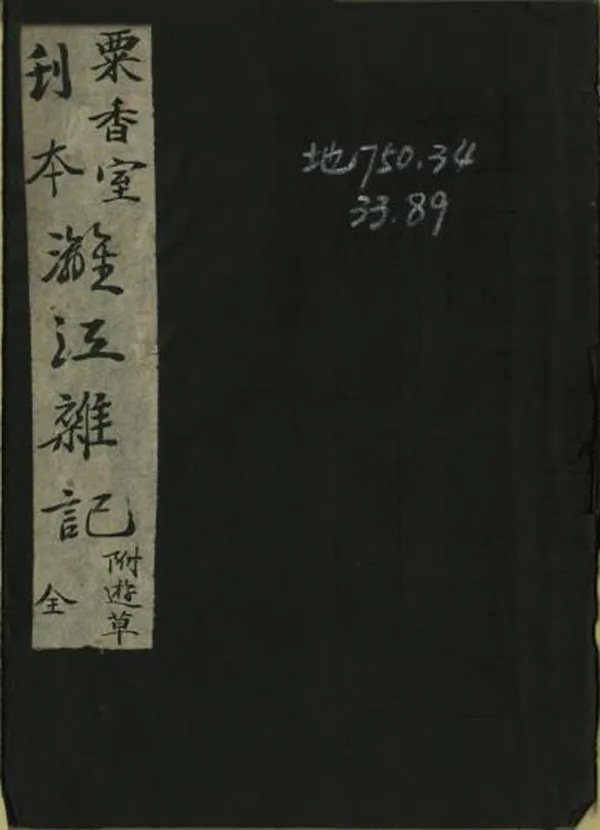 粟香室
刊本
灕江雜記
附遊草
全
地750.34
33.89